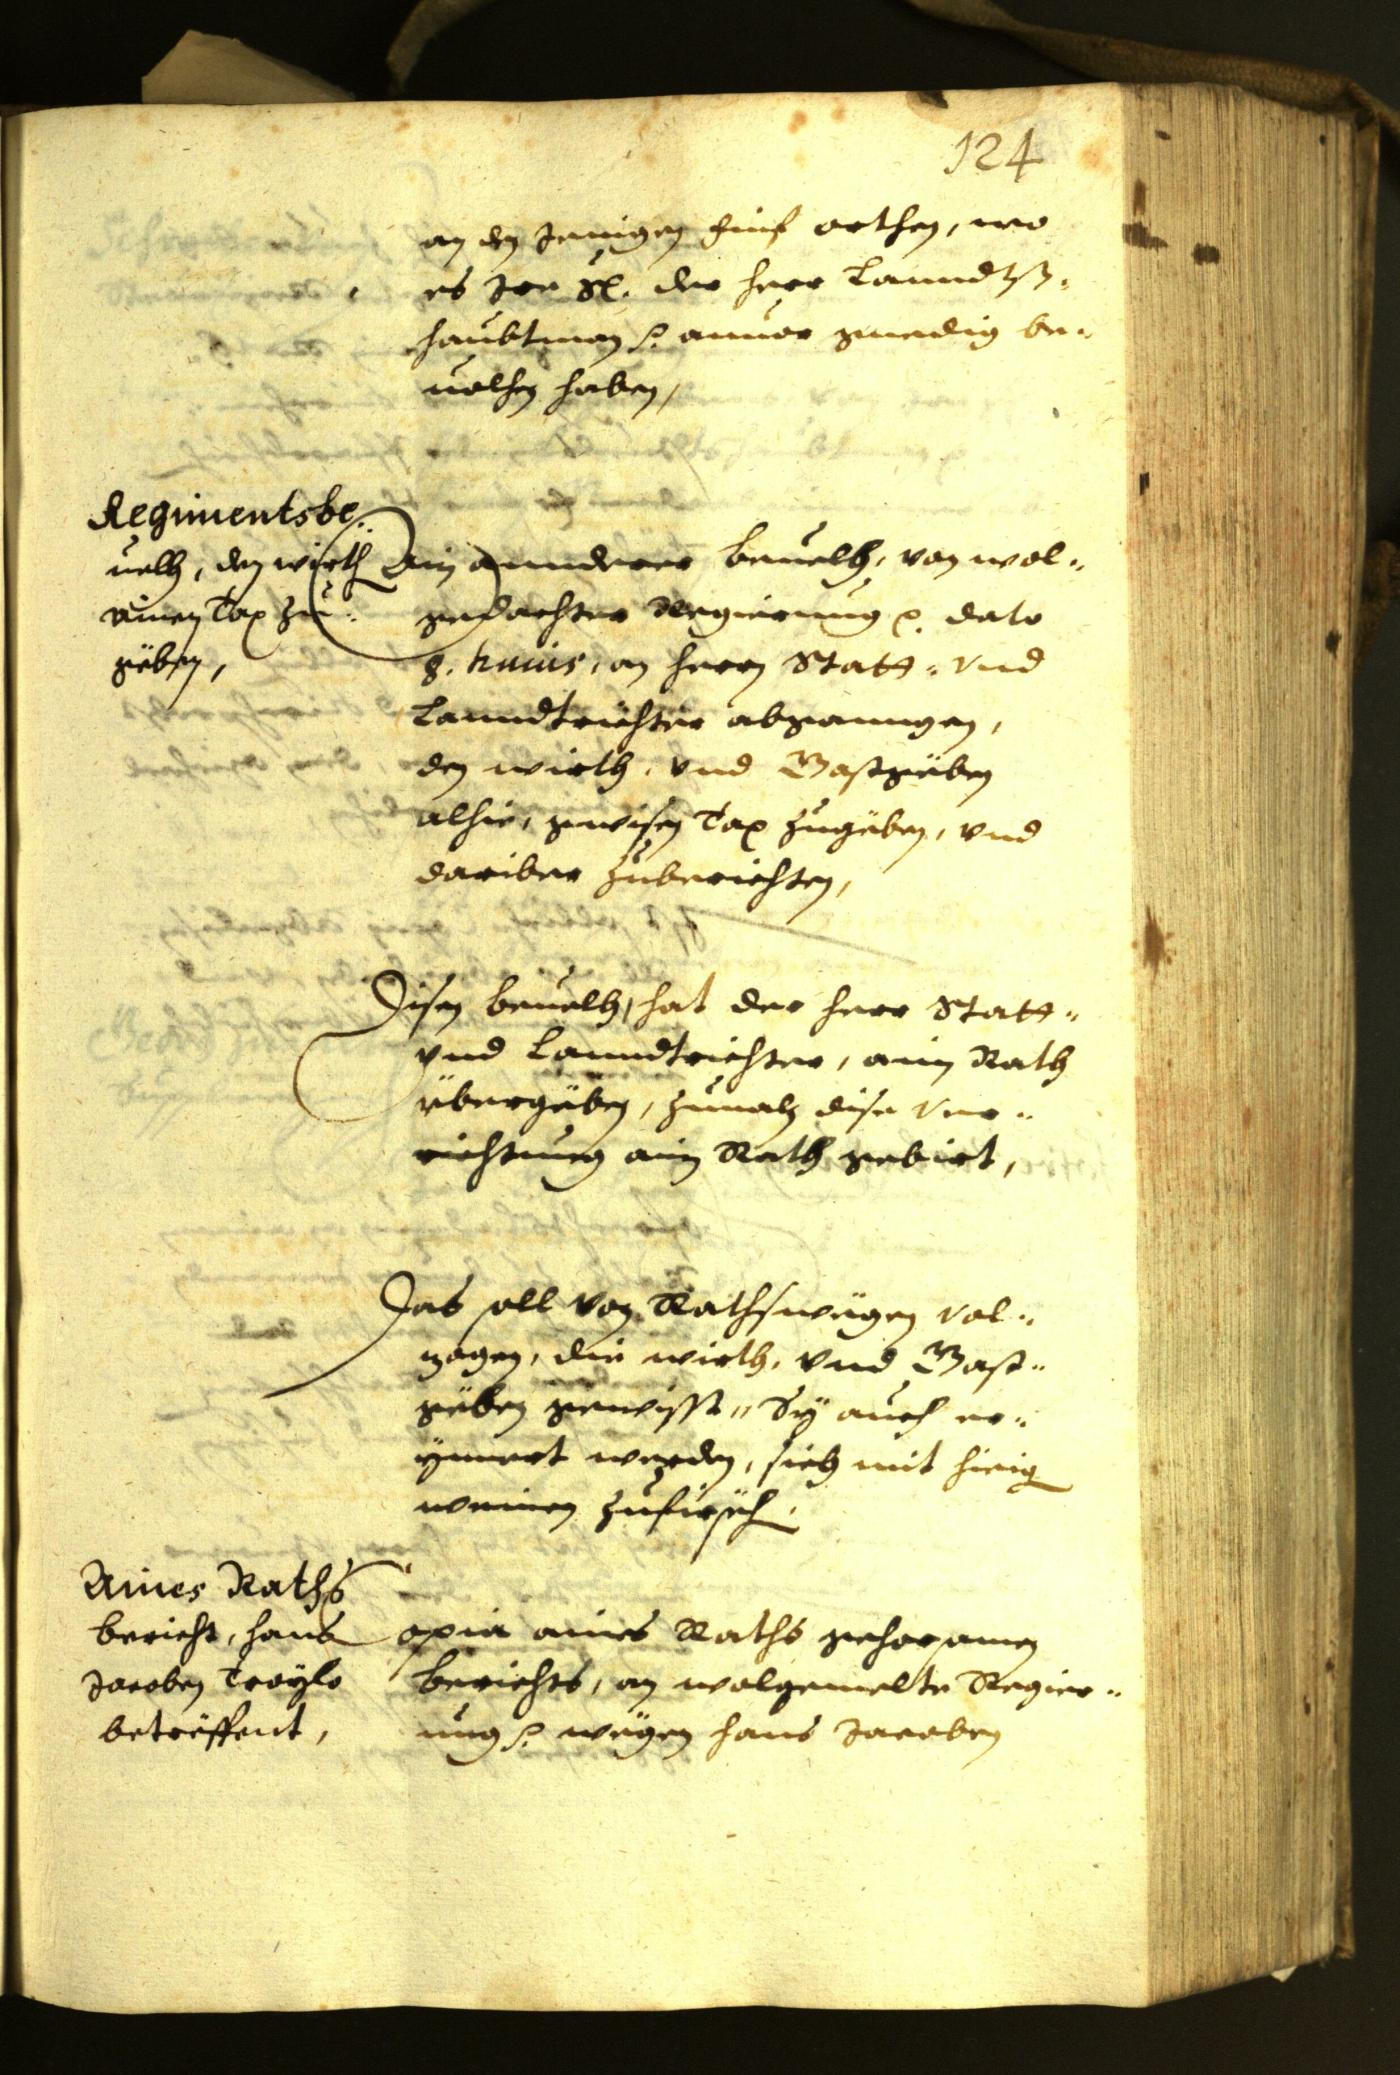 124
an den Jenigen finf orthen, wo
es Ire Gl. der herr Lanndtß¬
haubtman ꝛ. anuor gnedig be¬
uolhen haben,
Regimentsbe¬
uelh, den wirth
ainen Tax zu¬
geben,
Ain annderer beuelh, von wol¬
gedachter Regierung ꝛ. dato
8. huius, an herrn Statt- vnd
Lanndtrichter abganngen,
den wirth, vnd Gastgeben
alhie, gwisen Tax zugeben, vnd
dariber zuberichten,
Disen beuelh, hat der herr Statt-
vnd Lanndtrichter, aim Rath
übergeben, zumaln dise ver¬
richtung aim Rath gebirt,
Das soll von Rathswegen vol¬
zogen, die wirth, vnd Gast¬
geben gewisst, Sy auch er¬
ynnert werden, sich mit hieig
weinen zufirseh.
Aines Raths
bericht, hans
Jacoben Troylo
betreffent,
Copia aines Raths gehorsamen
berichts, an wolgemelte Regier¬
ung ꝛ. wegen hans Jacoben